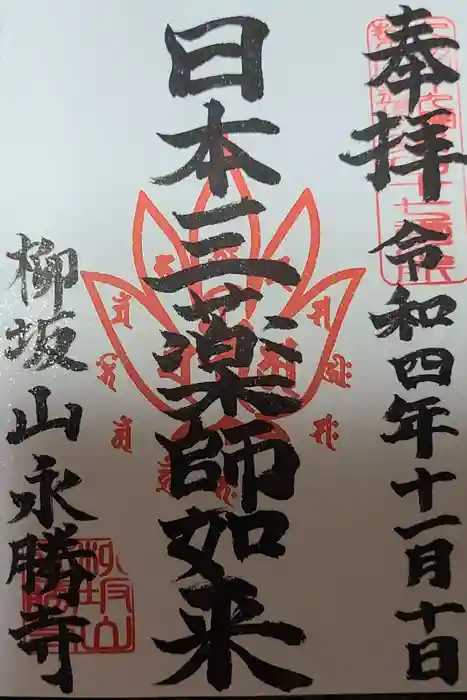 奉拝
令和四年十一月十日
日本三薬師如来
柳坂山永勝寺